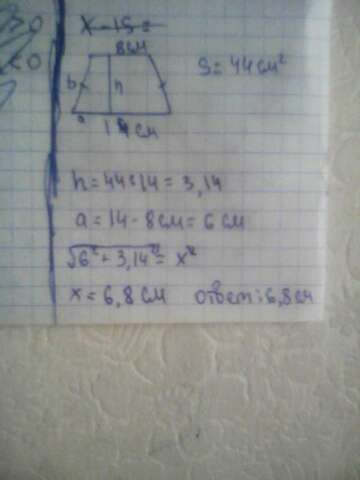 >0
<0
x - 15 =
8см
b
h
a
14 см
S = 44 см²
h = 44:14 = 3,14
a = 14 - 8см = 6 см
√6² + 3,14² = x²
x = 6,8 см ответ: 6,8см